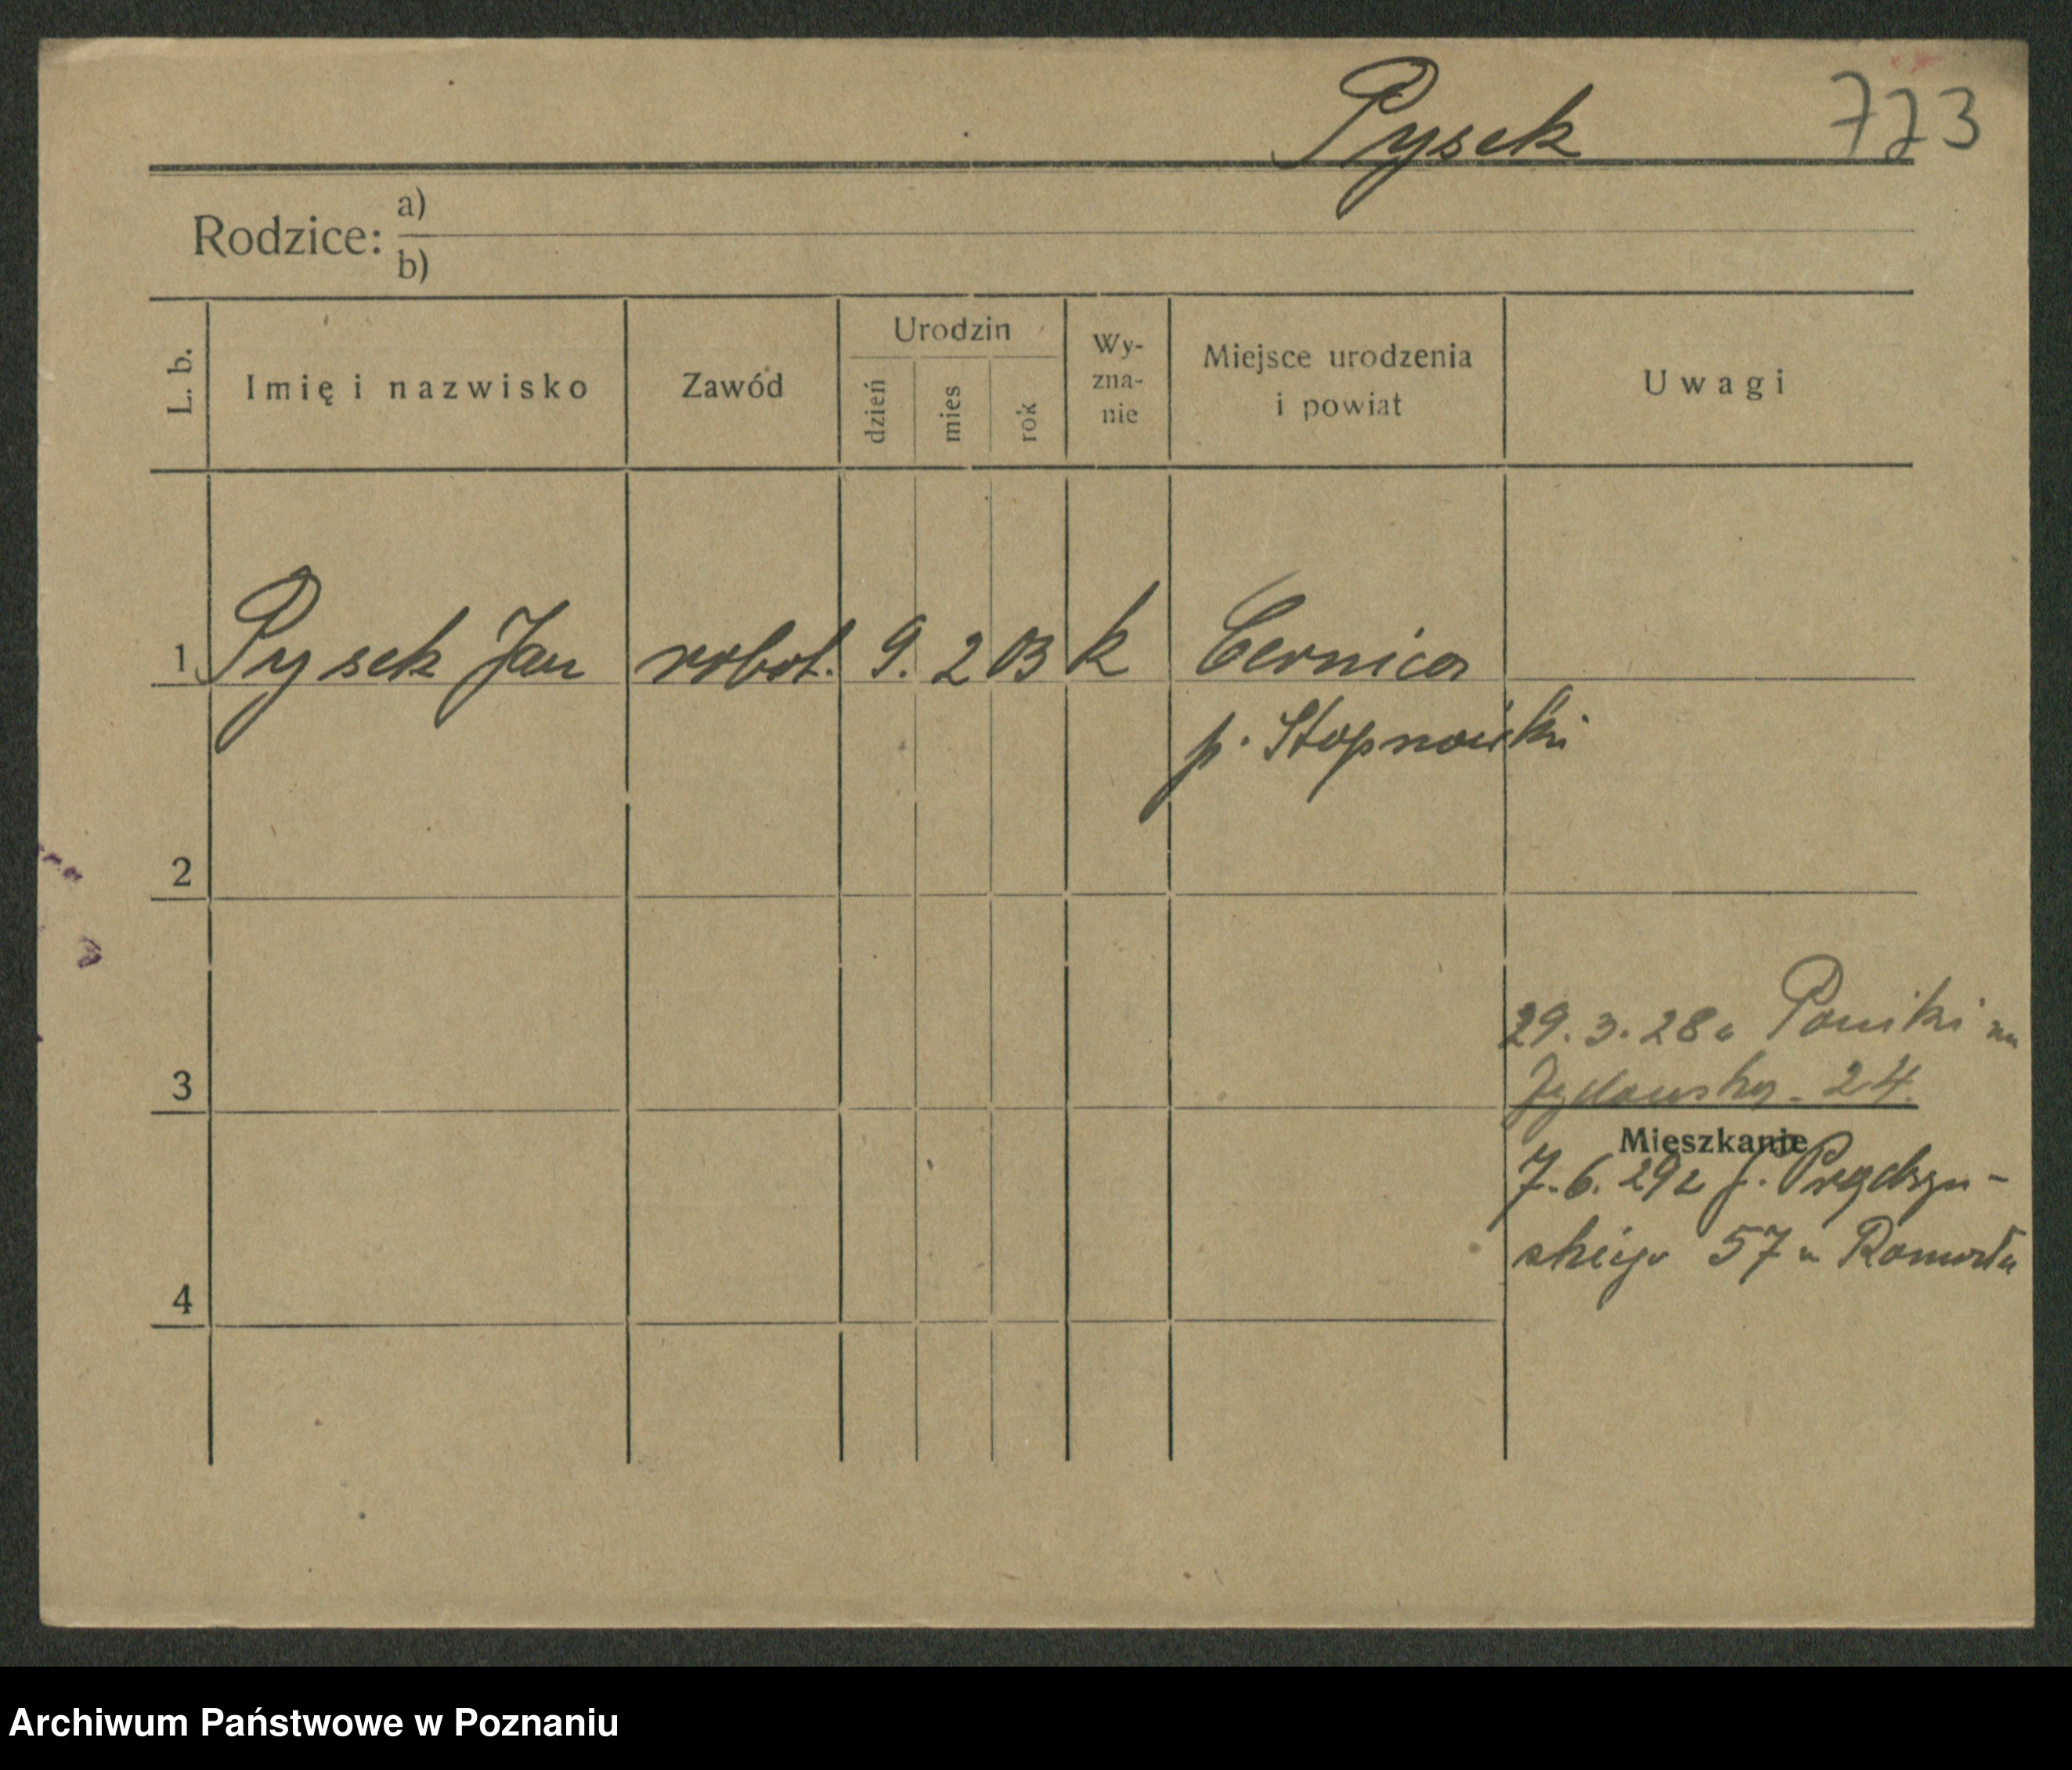 Pysek 773
Rodzice: a)
b)
L. b. Imię i nazwisko Zawód Urodzin dzień mies rok Wy-zna-nie Miejsce urodzenia i powiat Uwagi
1 Pysek Jan robot. 9. 2 03 k Cernica
p. Stopnowski
2
29.3.28
3 24.
Mieszkanie
7.6.29 f. Prądzyń-
skiego 57
4
Archiwum Państwowe w Poznaniu